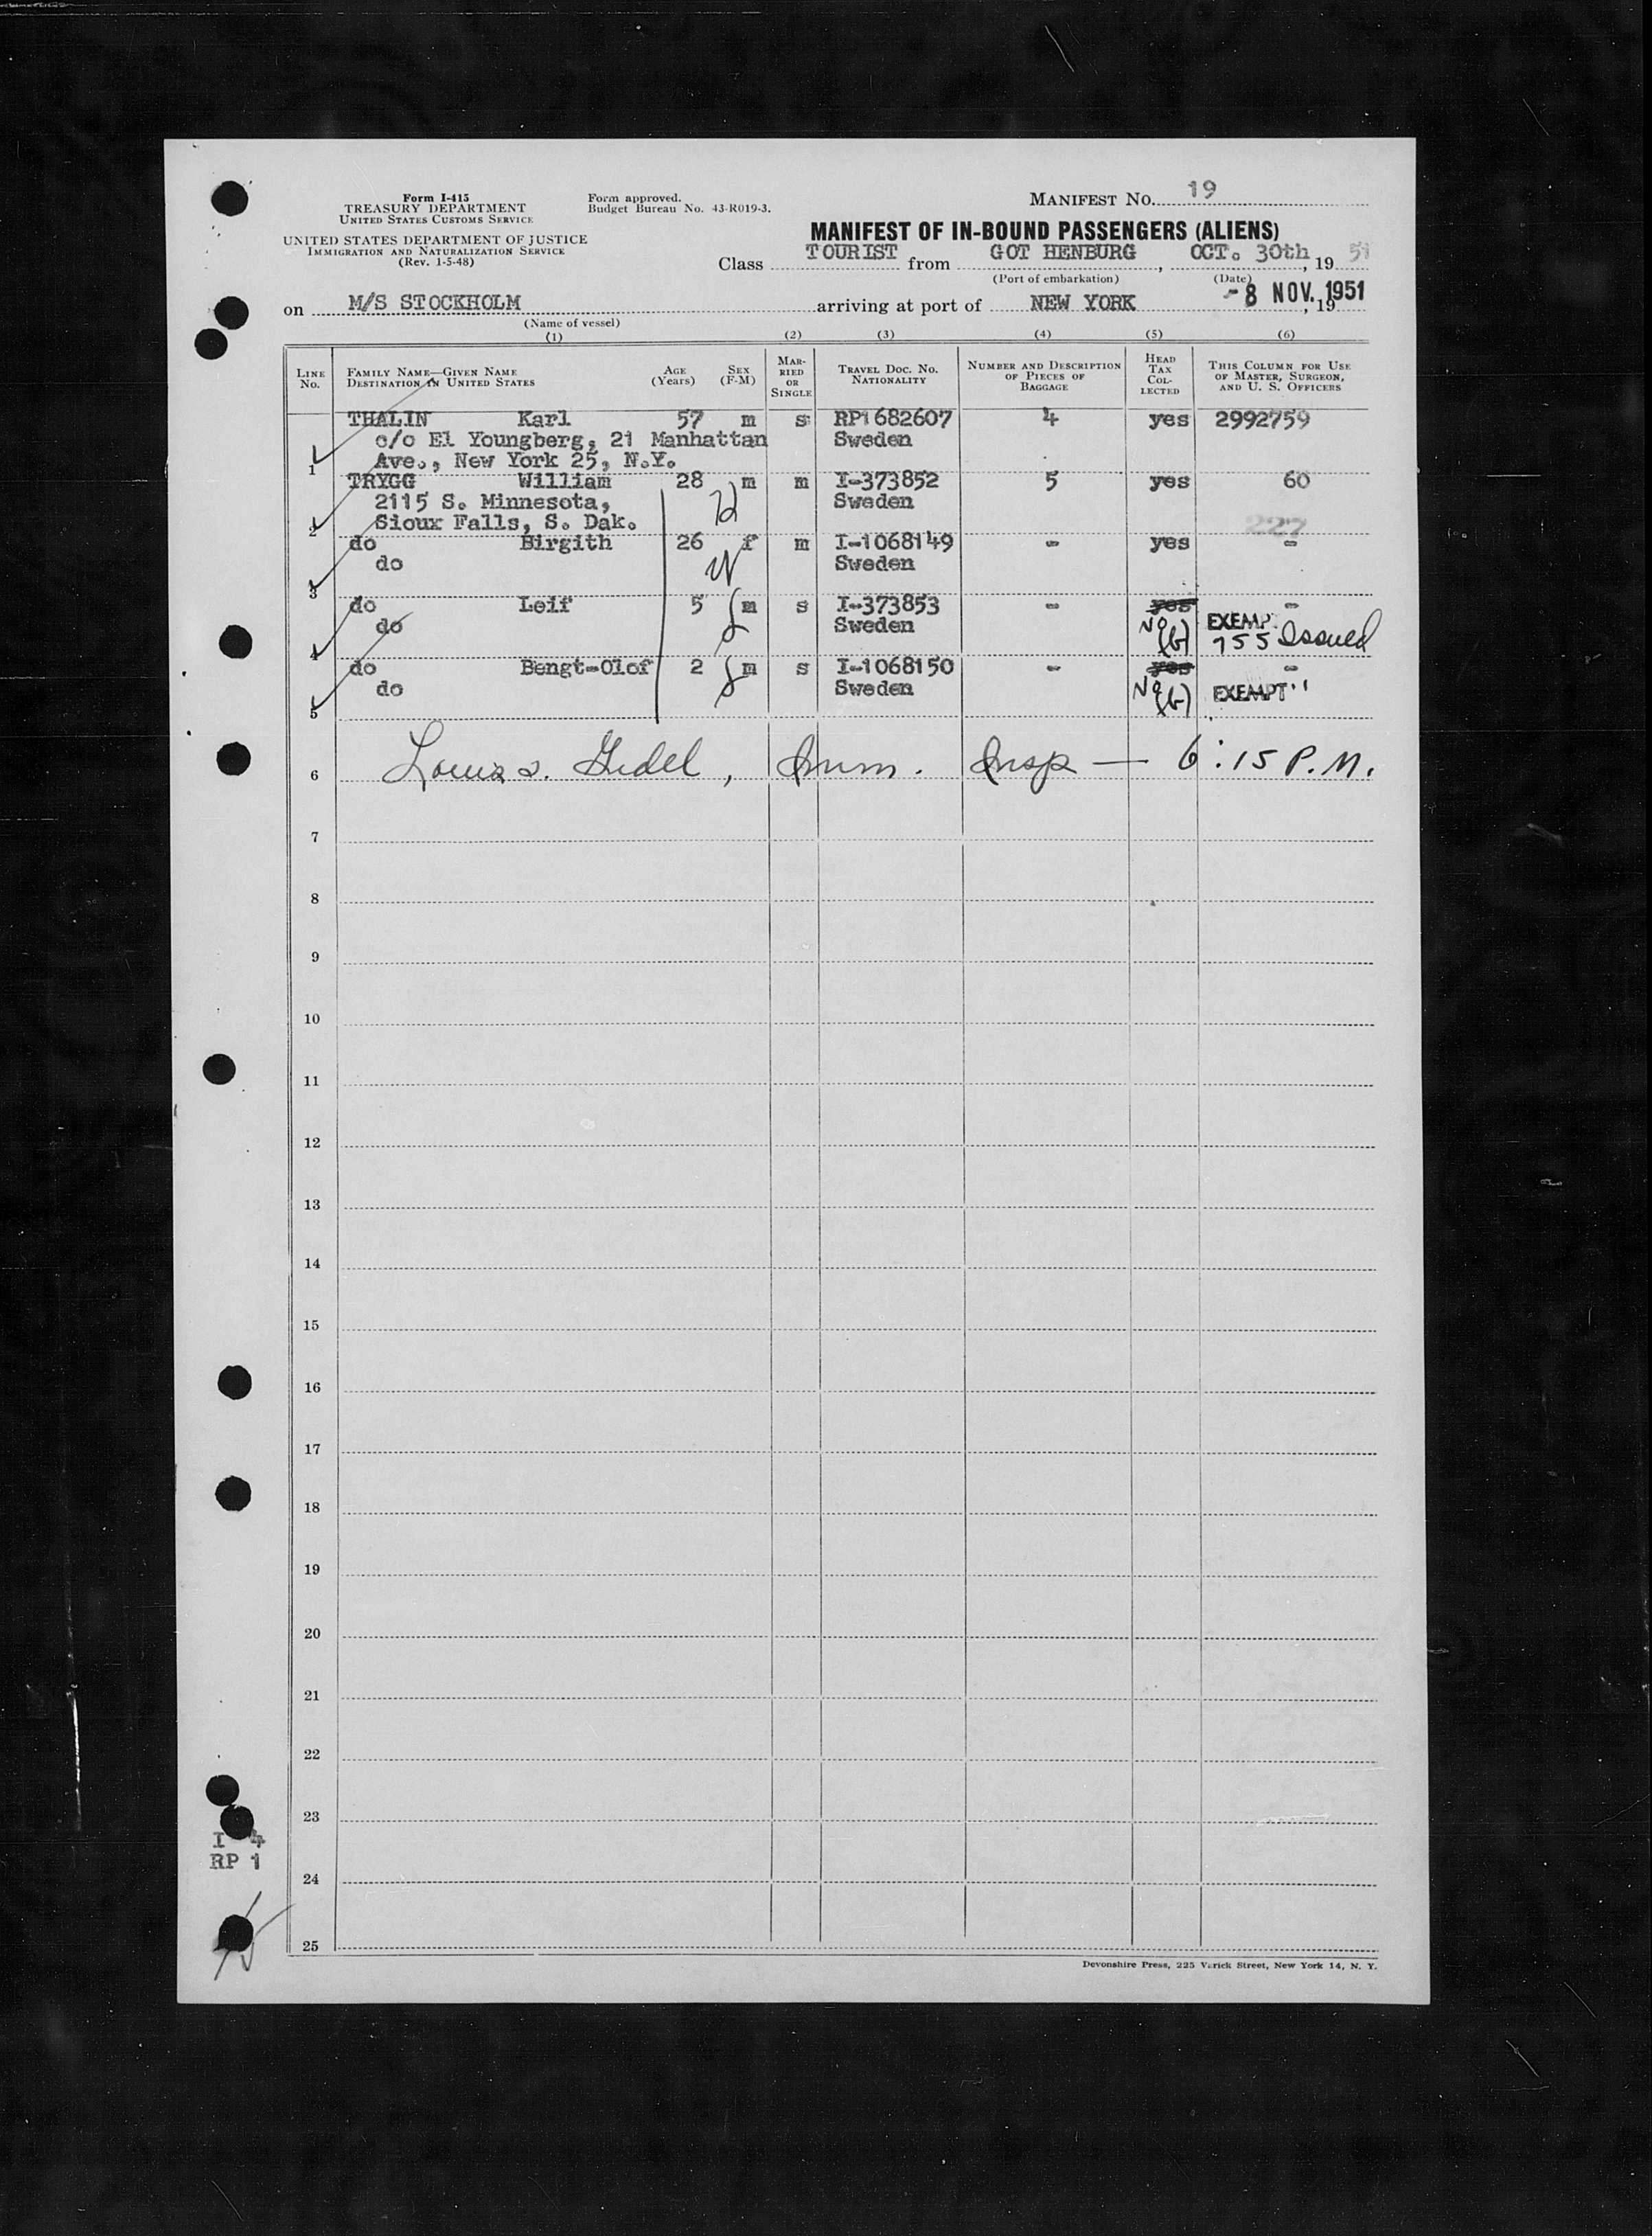 Form I-415
TREASURY DEPARTMENT
UNITED STATES CUSTOMS SERVICE
UNITED STATES DEPARTMENT OF JUSTICE
IMMIGRATION AND NATURALIZATION SERVICE
(Rev. 1-5-48)
Form approved.
Budget Bureau No. 43-R019-3.
MANIFEST NO. 19
MANIFEST OF IN-BOUND PASSENGERS (ALIENS)
Class TOURIST from GOT HENBURG, OCT. 30th, 19 51
(Port of embarkation) (Date)
on M/S STOCKHOLM arriving at port of NEW YORK -8 NOV. 1951, 19
(Name of vessel)
(1) (2) (3) (4) (5) (6)
LINE No. FAMILY NAME—GIVEN NAME DESTINATION IN UNITED STATES AGE (Years) SEX (F-M) MARRIED OR SINGLE TRAVEL DOC. NO. NATIONALITY NUMBER AND DESCRIPTION OF PIECES OF BAGGAGE HEAD TAX COLLECTED THIS COLUMN FOR USE OF MASTER, SURGEON, AND U. S. OFFICERS
THALIN Karl 57 m s RP1682607 4 yes 2992759
c/o El Youngberg, 21 Manhattan Sweden
1 Ave., New York 25, N.Y.
TRYGG William 28 m m I-373852 5 yes 60
2115 S. Minnesota, Sweden
2 Sioux Falls, S. Dak. 227
do Birgith 26 f m I-1068149 - yes -
do Sweden
3
do Leif 5 m s I-373853 - yes -
do Sweden No (6) EXEMP. 755 Issued
4
do Bengt-Olof 2 m s I-1068150 - yes -
do Sweden No (6) EXEMPT "
5
6 Louis S. , Imm. Insp — 6:15 P.M.
7
8
9
10
11
12
13
14
15
16
17
18
19
20
21
22
23
24
25
I 4
RP 1
Devonshire Press, 225 Varick Street, New York 14, N. Y.